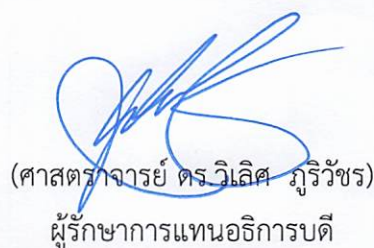 (ศาสตราจารย์ ดร.วิเลิศ ภูริวัชร)
ผู้รักษาการแทนอธิการบดี